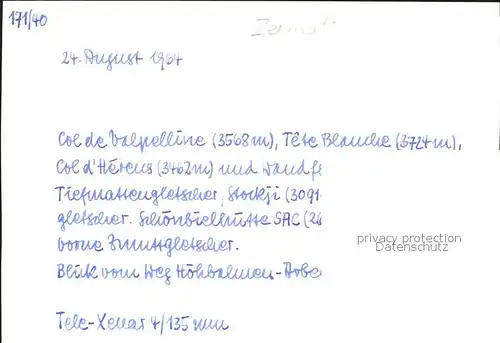 171/40
Zermatt
24. August 1964
Col de Valpelline (3568m), Tête Blanche (3724m),
Col d'Hérens (3462m) und Wandfl
Tiefmattengletscher, Stockji (3091
gletscher. Schönbielhütte SAC (26
vorne Zmuttgletscher.
Blick vom Weg Höhbalmen-Arbe
privacy protection
Datenschutz
Tele-Xenar 4/135 mm